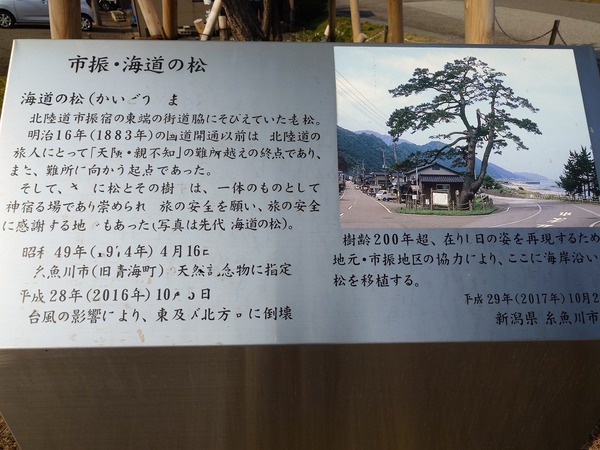 市振・海道の松
海道の松(かいごう ま
北陸道市振宿の東端の街道脇にそびえていた老松。
明治16年(1883年)の国道開通以前は 北陸道の
旅人にとって「天険・親不知」の難所越えの終点であり、
また、難所に向かう起点であった。
そして、さ に松とその樹 は、一体のものとして
神宿る場であり崇められ 旅の安全を願い、旅の安全
に感謝する地 もあった(写真は先代 海道の松)。
昭和 49年( 9 4年) 4月16日
糸魚川市(旧青海町) 天然記念物に指定
平成28年(2016年) 10月 日
台風の影響により、東及 北方 に倒壊
樹齢200年超、在りし日の姿を再現するため
地元・市振地区の協力により、ここに海岸沿い
松を移植する。
平成29年(2017年) 10月2
新潟県 糸魚川市